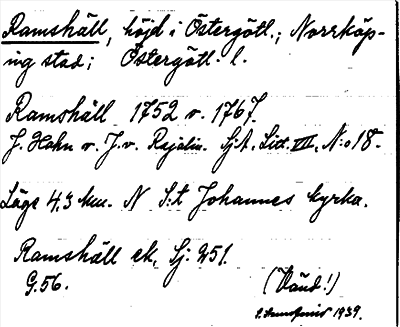 Ramshäll, höjd i Östergötl.; Norrköp-
ing stad; Östergötl. l.
Ramshäll 1752 v. 1767.
J. Hahn v. J. v. Rajalin. Sj.A. Litt. VII. N:o 18.
Läge 4,3 km. N S:t Johannes kyrka.
Ramshäll ek. Sj. 251.
G.56.
(Vänd!)
1939.